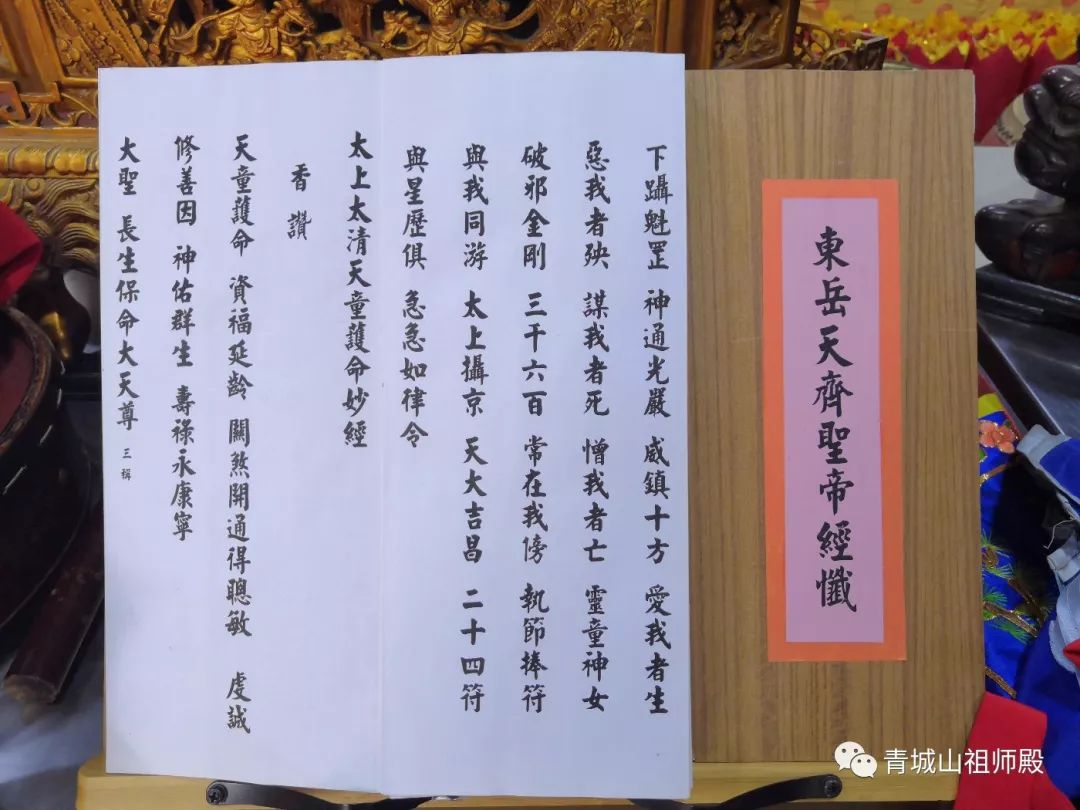 東岳天齊聖帝經懺
下躡魁罡 神通光嚴 威鎮十方 愛我者生
惡我者殃 謀我者死 憎我者亡 靈童神女
破邪金剛 三千六百 常在我傍 執節捧符
與我同游 太上攝京 天大吉昌 二十四符
與星歷俱 急急如律令
太上太清天童護命妙經
香讚
天童護命 資福延齡 關煞開通得聰敏 虔誠
修善因 神佑群生 壽祿永康寧
大聖 長生保命大天尊 三稱
青城山祖师殿